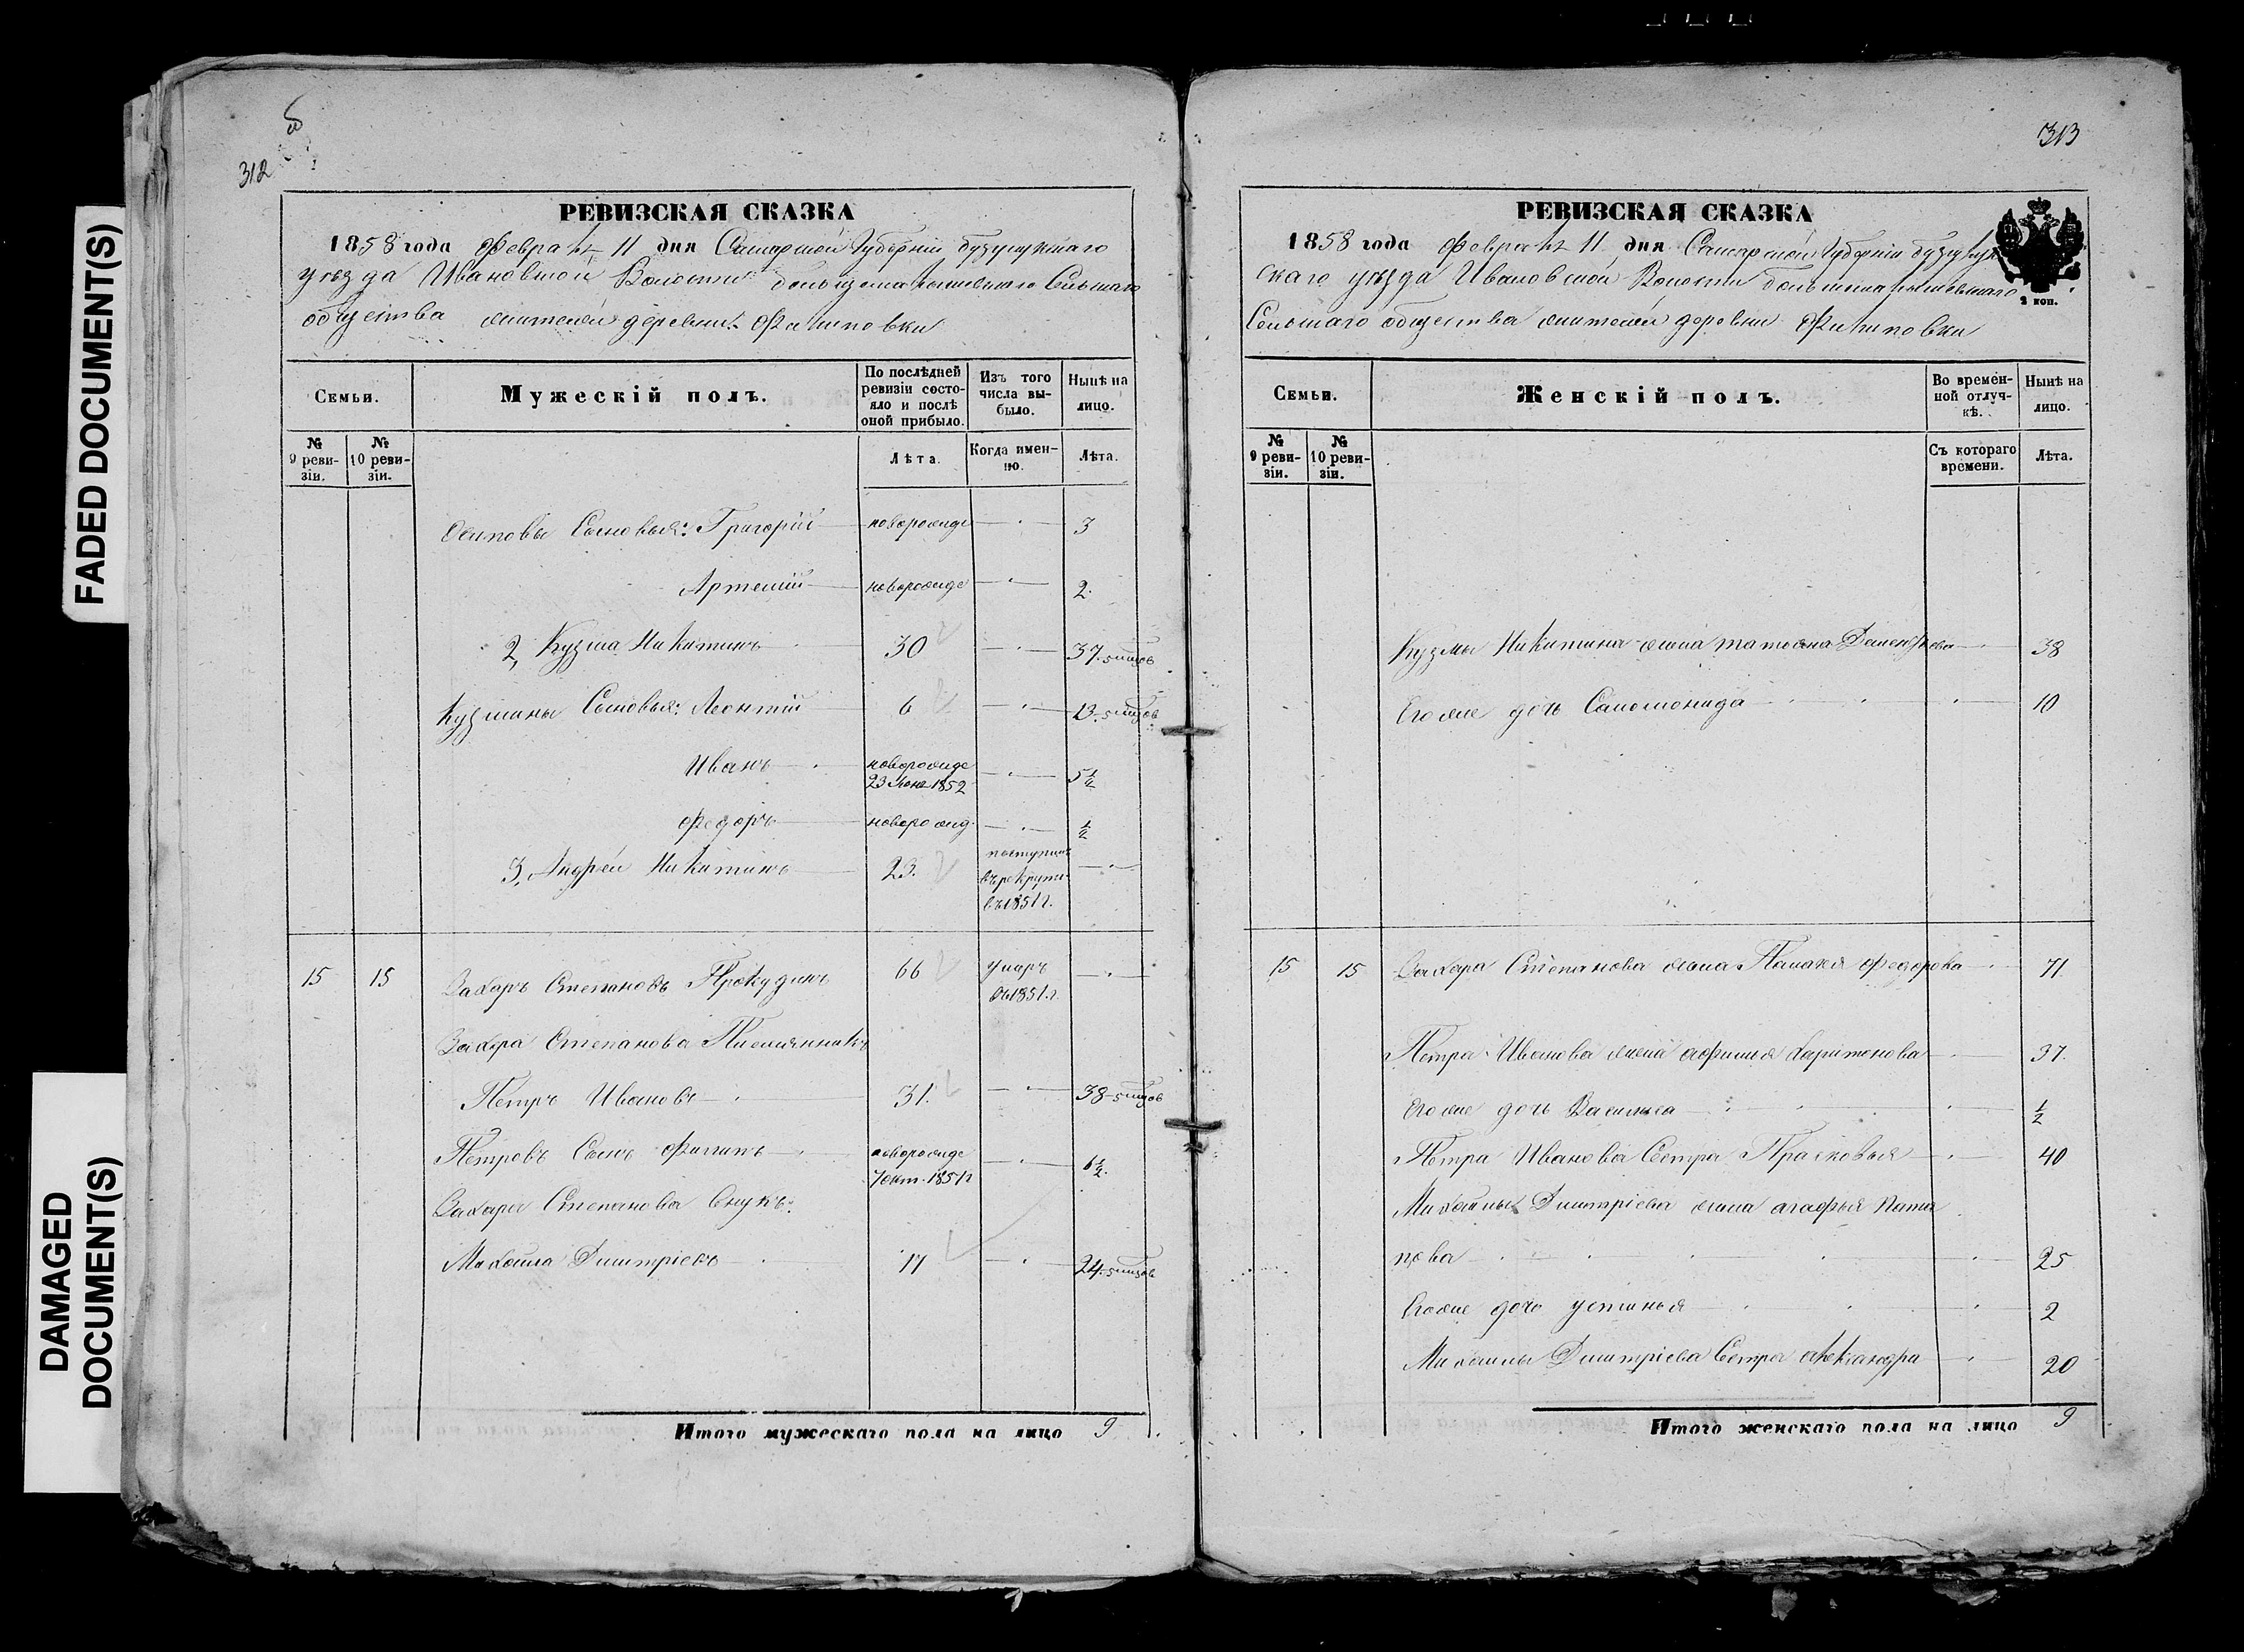 FADED DOCUMENT(S)
DAMAGED
DOCUMENT(S)
312
РЕВИЗСКАЯ СКАЗКА
1858 года Февраля 11 дня Самарской Губерніи бузулукскаго
уѣзда Ивановской Волости Сельскаго
общества жителей деревни Филиповки
Семьи.
Мужескій полъ.
По послѣдней ревизіи состояло и послѣ оной прибыло.
Изъ того числа выбыло.
Нынѣ на лицо.
№ 9 ревизіи.
№ 10 ревизіи.
Лѣта.
Когда именно.
Лѣта.
Осиповы Сыновья: Григорій новорожде 3
Артемій новорожде 2
2, Кузма Никитинъ 30 37
Кузмины Сыновья: Леонтій 6 13
Иванъ новорожде 23 1852 5½
Федоръ новорожд. ½
3, Андрей Никитинъ 23. поступилъ въ рекруты въ 1851 г.
15 15 Захаръ Степановъ Прокудинъ 66 умеръ въ 1851 г.
Захара Степанова Племянникъ
Петръ Ивановъ 31. 38
Петровъ Сынъ Филипъ новорожде 7 окт. 1851 г 6½.
Захара Степанова Внукъ:
Михайла Дмитріевъ 17 24
Итого мужескаго пола на лицо 9
313
РЕВИЗСКАЯ СКАЗКА
1858 года Февраля 11 дня Самарской Губерніи бузулук
скаго уѣзда Ивановской Волости
Сельскаго общества жителей деревни Филиповки
2 коп.
Семьи.
Женскій полъ.
Во временной отлучкѣ.
Нынѣ на лицо.
№ 9 ревизіи.
№ 10 ревизіи.
Съ котораго времени.
Лѣта.
Кузмы Никитина жена татьяна 38
Его же дочь Саломонида 10
15 15 Захара Степанова жена Палагея Федорова 71.
Петра Иванова жена афимия Харитонова 37.
Его же дочь Василиса ½
Петра Иванова Сестра Прасковья 40
Михайлы Дмитріева жена агафья Пата
пова 25
Его же дочь устинья 2
Михайлы Дмитріева Сестра александра 20
Итого женскаго пола на лицо 9